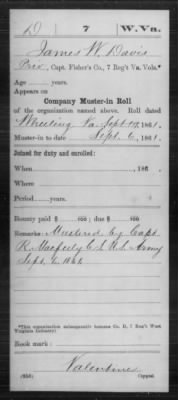 D | 7 | W.Va.
James W. Davis
Priv., Capt. Fisher's Co., 7 Reg't Va. Vols.*
Age ______ years.
Appears on
Company Muster-in Roll
of the organization named above. Roll dated
Wheeling Va. Sept 1861.
Muster-in to date Sept. 6, 1861.
Joined for duty and enrolled:
When ______, 186 .
Where ______
Period ______ years.
Bounty paid $ 100; due $ 100
Remarks: Mustered by Capt
R. U.S. Army
Sept. 1861
*This organization subsequently became Co. D, 7 Reg't West
Virginia Infantry.
Book mark:
Valentine
(356) Copyist.